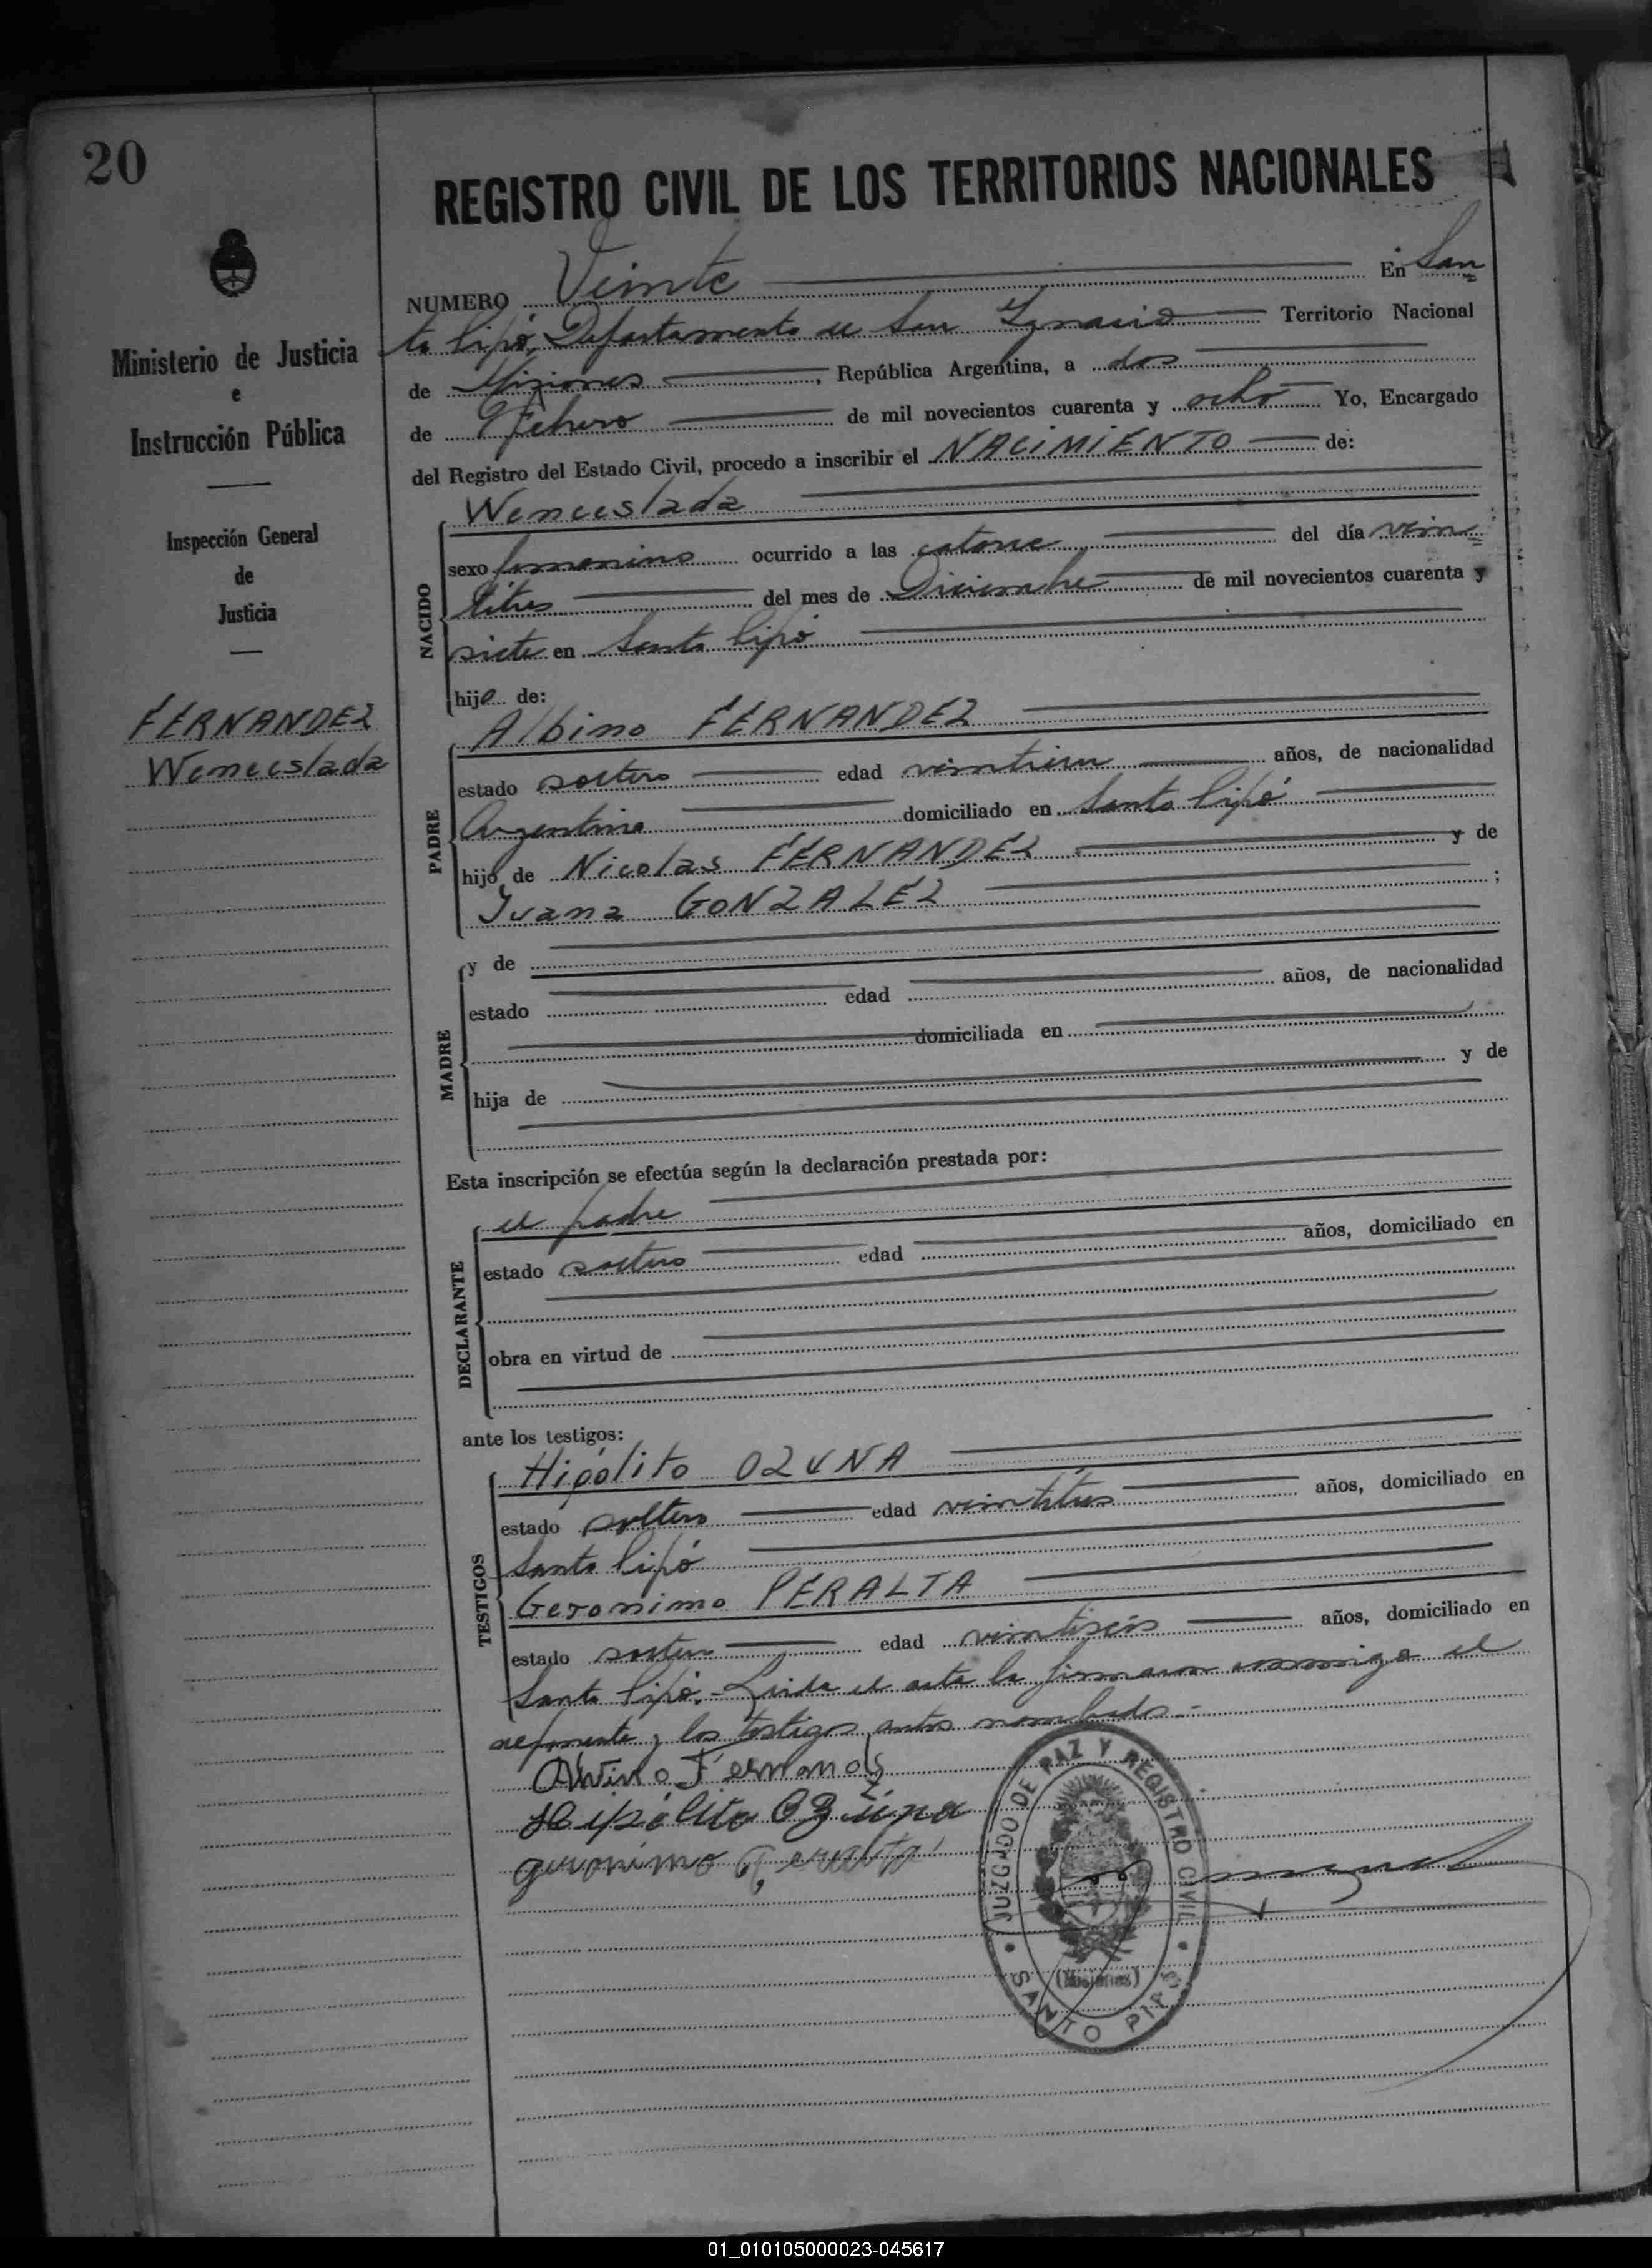 20
REGISTRO CIVIL DE LOS TERRITORIOS NACIONALES
NUMERO Veinte En San
to Pipó, Departamento de San Ignacio Territorio Nacional
de Misiones, República Argentina, a dos
de Febrero de mil novecientos cuarenta y ocho Yo, Encargado
del Registro del Estado Civil, procedo a inscribir el NACIMIENTO de:
Ministerio de Justicia
e
Instrucción Pública
Inspección General
de
Justicia
FERNANDEZ
Wenceslada
NACIDO
Wenceslada
sexo femenino ocurrido a las catorce del día vein
titres del mes de Diciembre de mil novecientos cuarenta y
siete en Santo Pipó
hija de:
PADRE
Albino FERNANDEZ
estado soltero edad veintiun años, de nacionalidad
Argentina domiciliado en Santo Pipó
hijo de Nicolas FERNANDEZ y de
Juana GONZALEZ ;
MADRE
y de
estado edad años, de nacionalidad
domiciliada en
hija de y de
Esta inscripción se efectúa según la declaración prestada por:
DECLARANTE
el padre
estado soltero edad años, domiciliado en
obra en virtud de
ante los testigos:
TESTIGOS
Hipólito OZUNA
estado soltero edad veintitres años, domiciliado en
Santo Pipó
Geronimo PERALTA
estado soltero edad veintiseis años, domiciliado en
Santo Pipó.- Leida el acta la firmaron conmigo el
exponente y los testigos antes nombrados.-
Alvino Fernandz
Hipólito Ozuna
geronimo Peralta
JUZGADO DE PAZ Y REGISTRO CIVIL
(Misiones)
SANTO PIPÓ
01_010105000023-045617